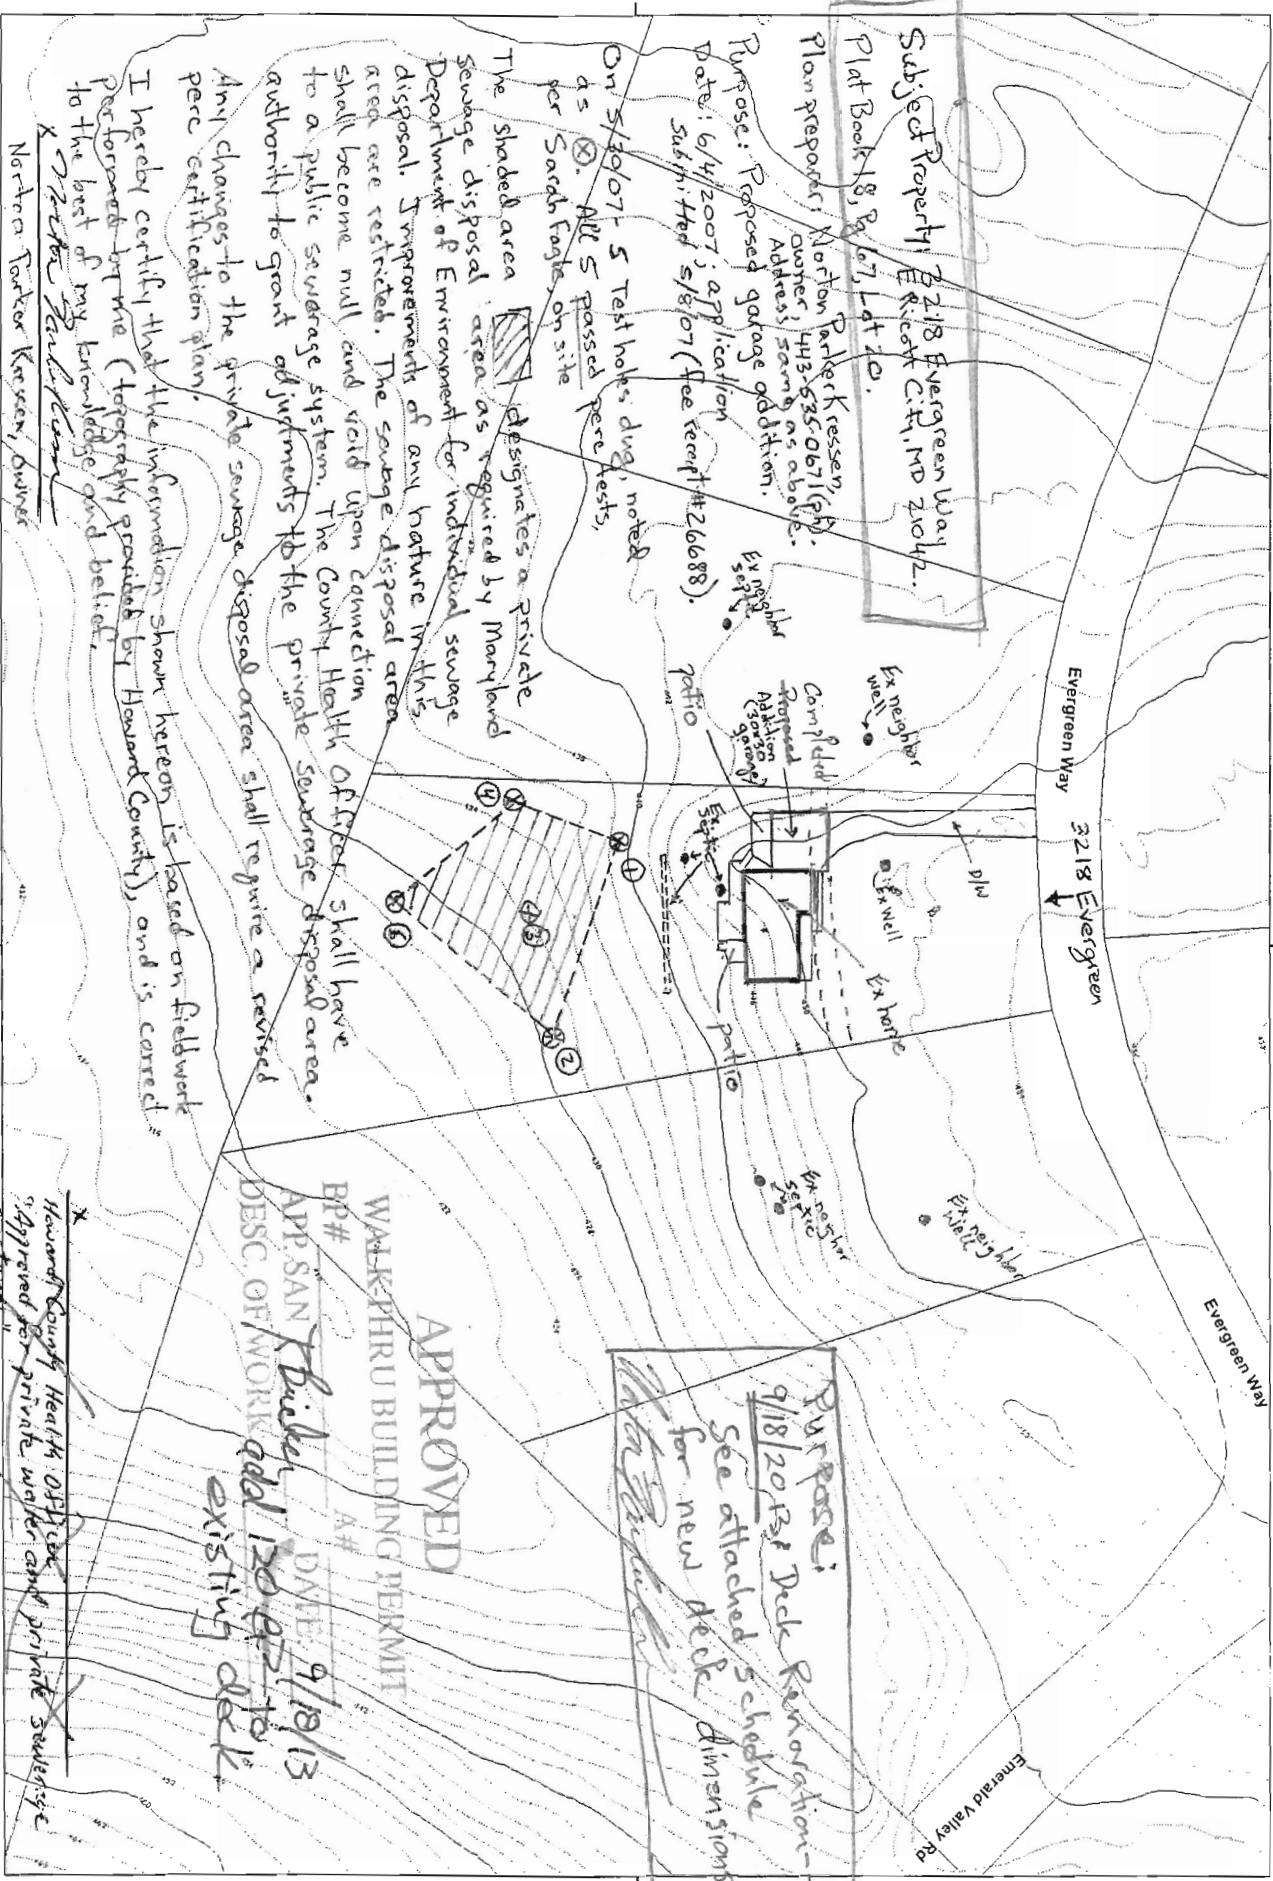 Subject Property: 3218 Evergreen Way
Ellicott City, MD 21042.
Plat Book 18, Pg 67, Lot 20.
Plan preparer: Norton Parker Kressen,
owner; 443-535-0671 (ph).
Address same as above.
Purpose: Proposed garage addition.
Date: 6/4/2007; application
submitted 5/8/07 (fee receipt #26688).
On 5/30/07 - 5 Test holes dug, noted
as ⊗. All 5 passed perc tests,
per Sarah Fogle, on site
The shaded area designates a private
sewage disposal area as required by Maryland
Department of Environment for individual sewage
disposal. Improvements of any nature in this
area are restricted. The sewage disposal area
shall become null and void upon connection
to a public sewerage system. The County Health Officer shall have
authority to grant adjustments to the private sewerage disposal area.
Any changes to the private sewage disposal area shall require a revised
perc certification plan.
I hereby certify that the information shown hereon is based on fieldwork
performed by me (topography provided by Howard County), and is correct
to the best of my knowledge and belief.
X
Norton Parker Kressen, owner
Evergreen Way
3218 Evergreen
Evergreen Way
Emerald Valley Rd
D/W
Ex neighbor
well
Ex Well
Ex neighbor
Well
Ex neighbor
septic
Completed
Proposed
Addition
(30x30
garage)
Ex home
patio
Ex.
septic
patio
Ex neighbor
septic
1
2
3
4
5
Purpose:
9/18/2013: Deck Renovation-
see attached schedule
for new deck dimensions
APPROVED
WALK-THRU BUILDING PERMIT
BP# A#
APP. SAN DATE: 9/18/13
DESC. OF WORK add 120 ft² to
existing deck
X
Howard County Health Officer
"Approved for private water and private sewerage